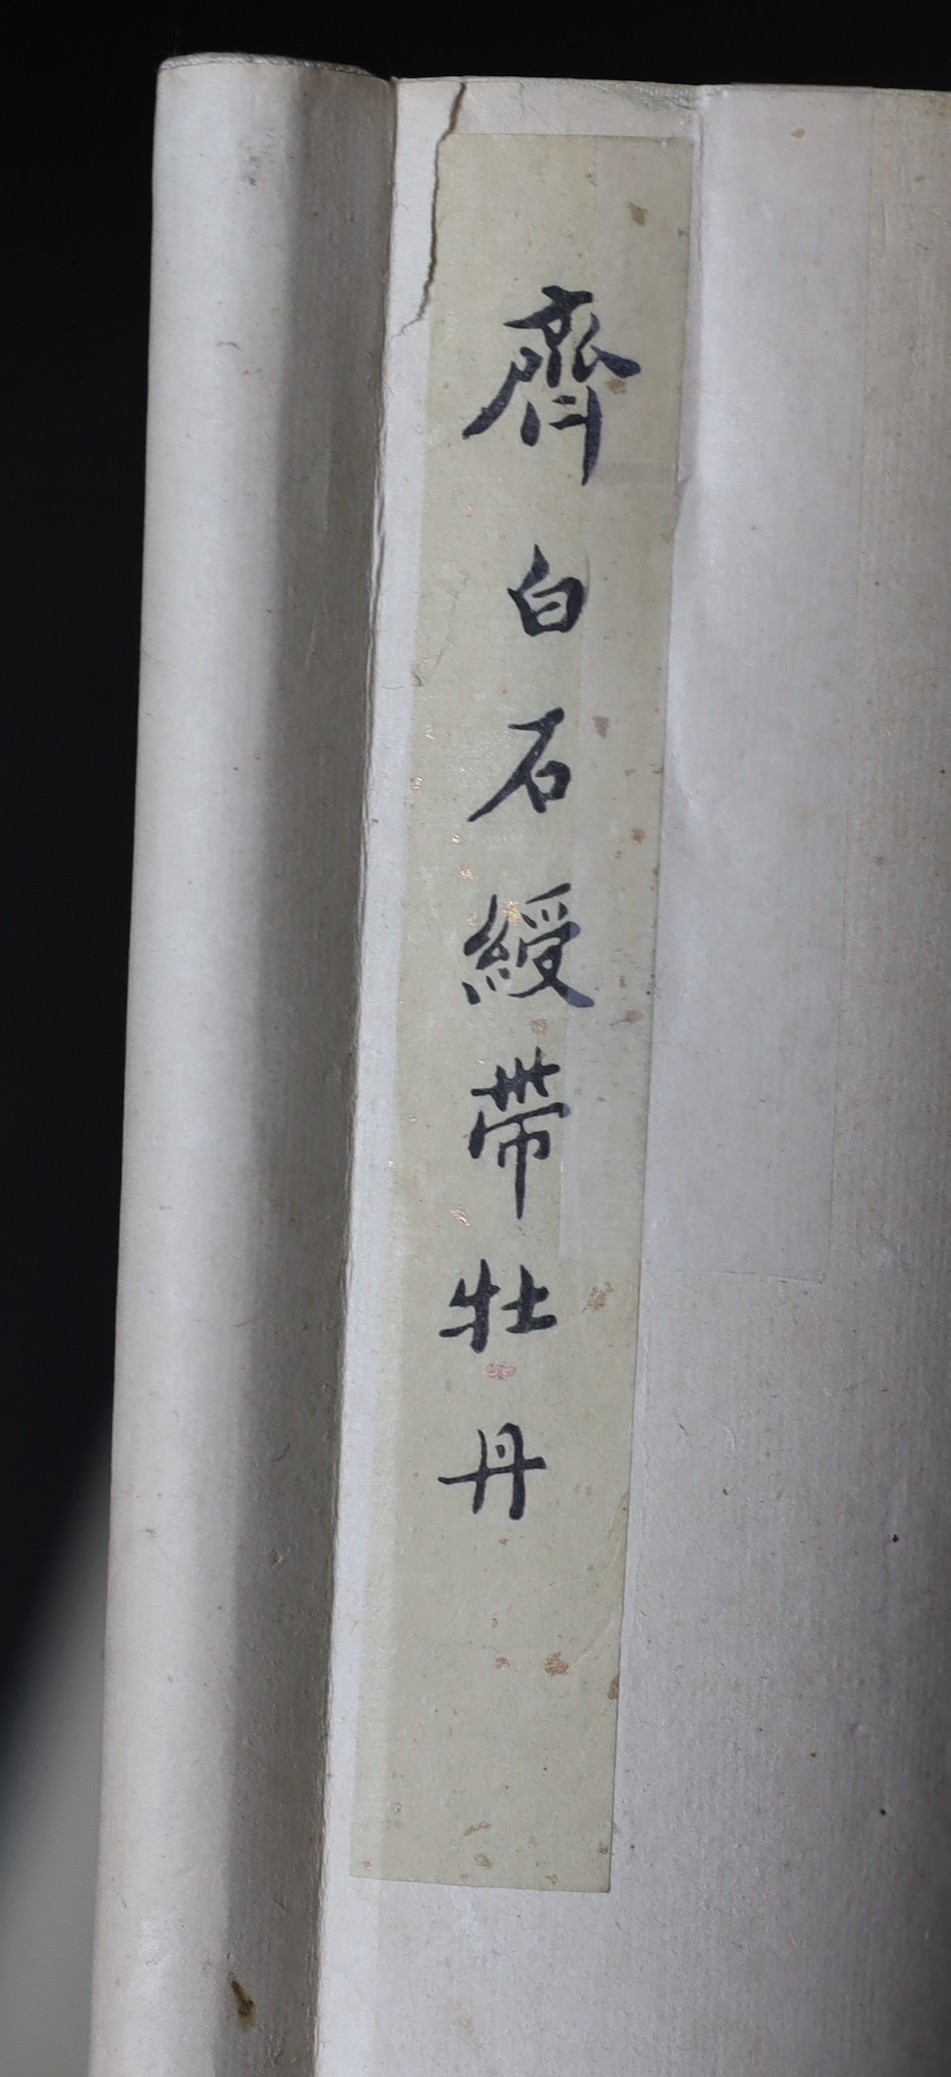 齊白石綬帶牡丹